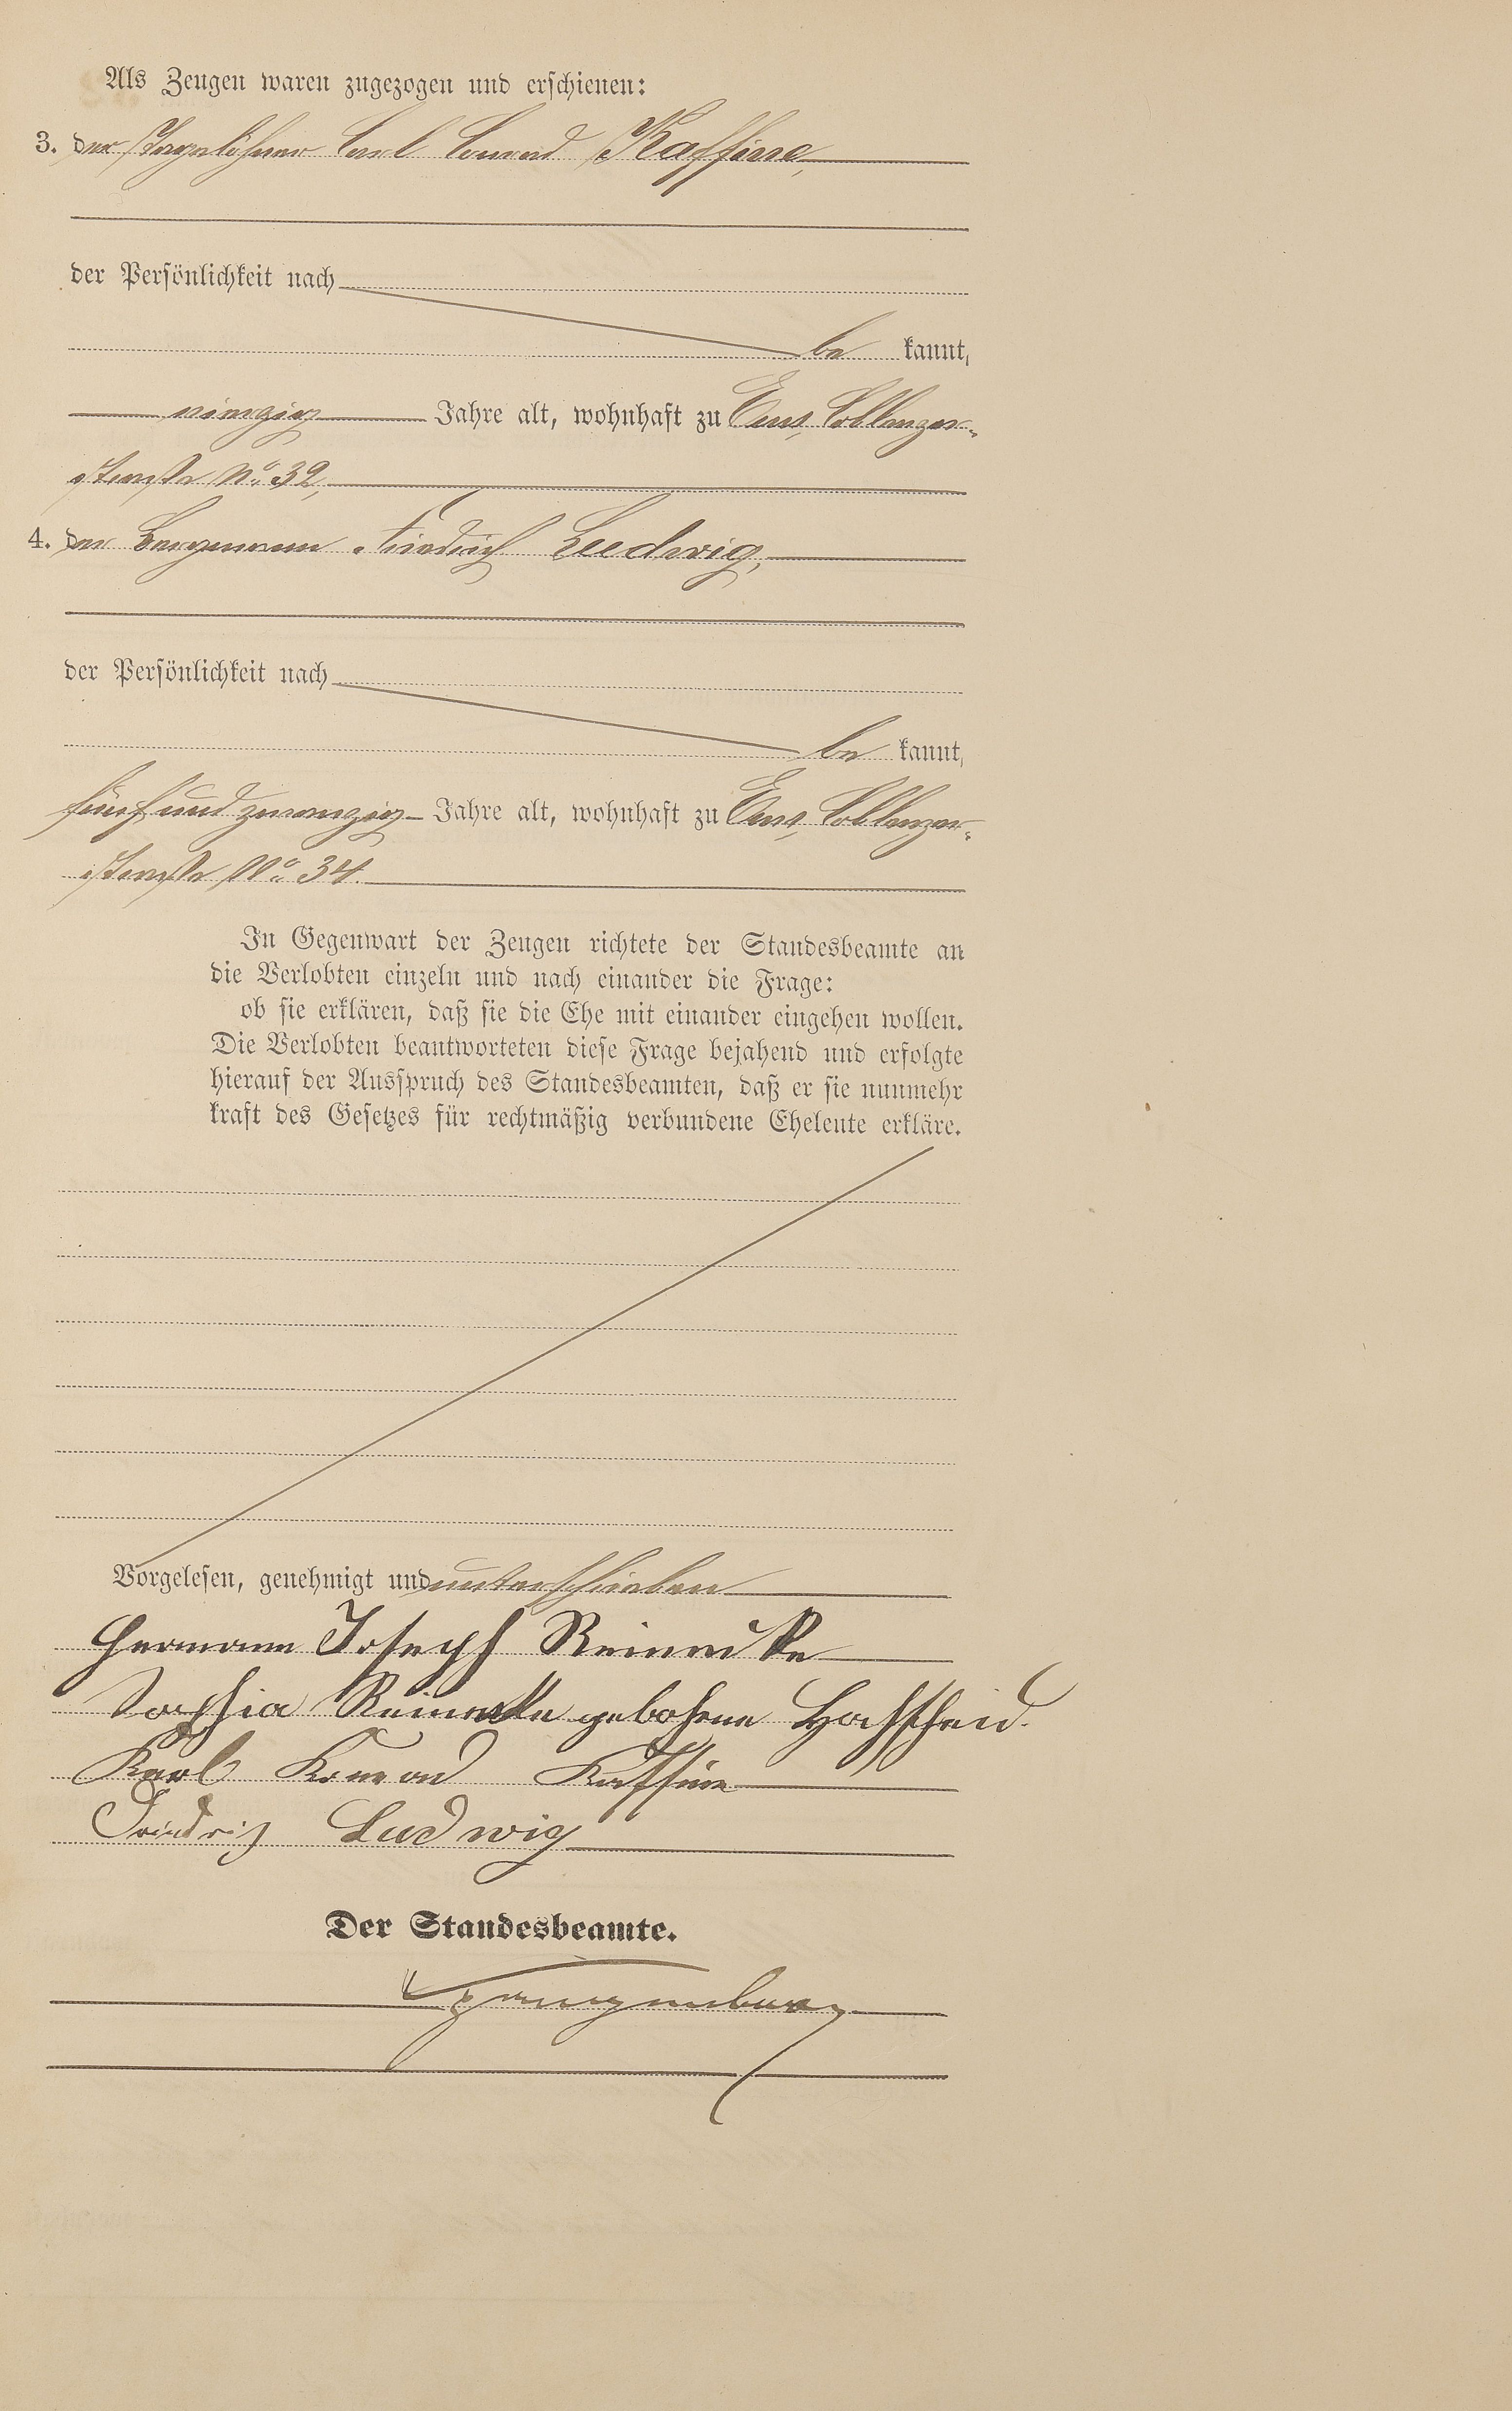 Als Zeugen waren zugezogen und erschienen:
3. der Tagelöhner Carl Conrad Kaffine,
der Persönlichkeit nach
be kannt,
vierzig Jahre alt, wohnhaft zu Ems, Coblenzer-
straße No. 32,
4. der Bergmann Friedrich Ludwig,
der Persönlichkeit nach
be kannt,
fünfundzwanzig Jahre alt, wohnhaft zu Ems, Coblenzer-
straße No. 34.
In Gegenwart der Zeugen richtete der Standesbeamte an
die Verlobten einzeln und nach einander die Frage:
ob sie erklären, daß sie die Ehe mit einander eingehen wollen.
Die Verlobten beantworteten diese Frage bejahend und erfolgte
hierauf der Ausspruch des Standesbeamten, daß er sie nunmehr
kraft des Gesetzes für rechtmäßig verbundene Eheleute erkläre.
Vorgelesen, genehmigt und unterschrieben
Hermann Joseph Reinecke
Sophia Reinecke gebohene Hochscheid.
Karl Konrad Kaffine
Friedrich Ludwig
Der Standesbeamte.